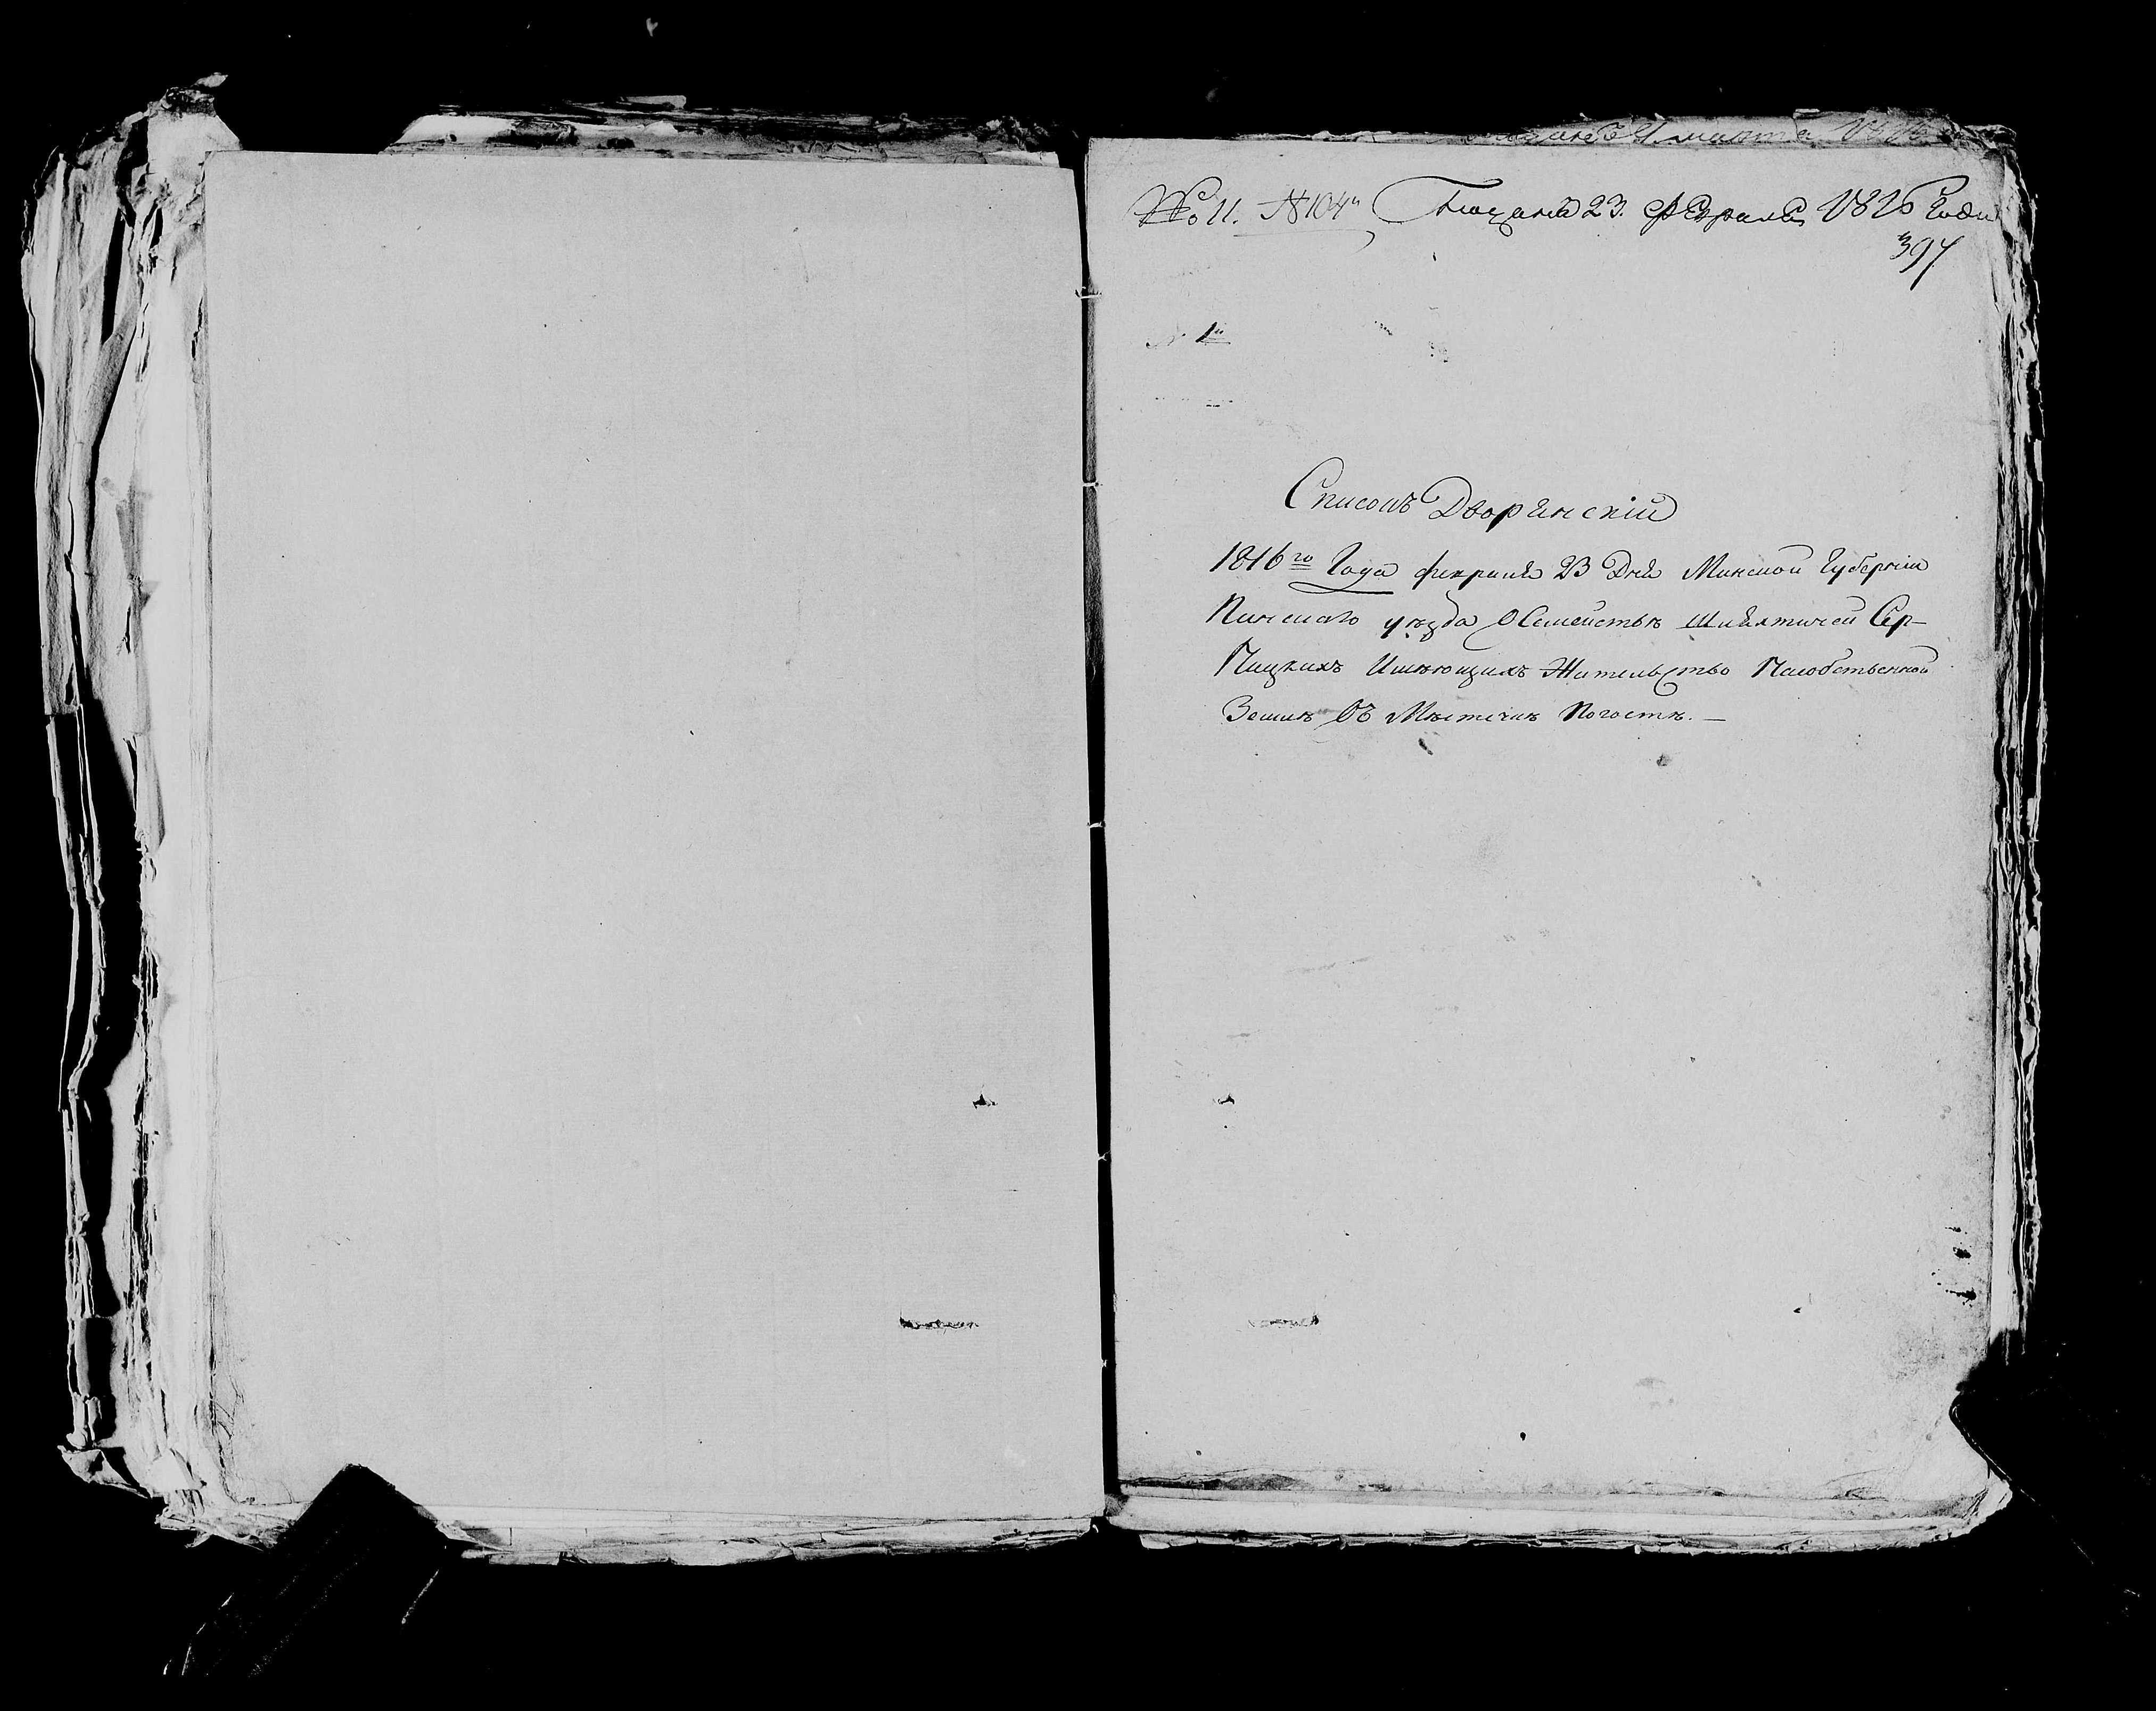 № 11. №104й Подана 23. февраля 1816 Года
397
№ 1й
Списокъ Дворянскій
1816го Года февраля 23 Дня Минской Губерніи
Пинскаго уѣзда О Семействѣ Шляхтичей Сер-
Пицкихъ Имѣющихъ Жительство На собственной
Землѣ Въ Мѣстечкѣ Погостѣ. —